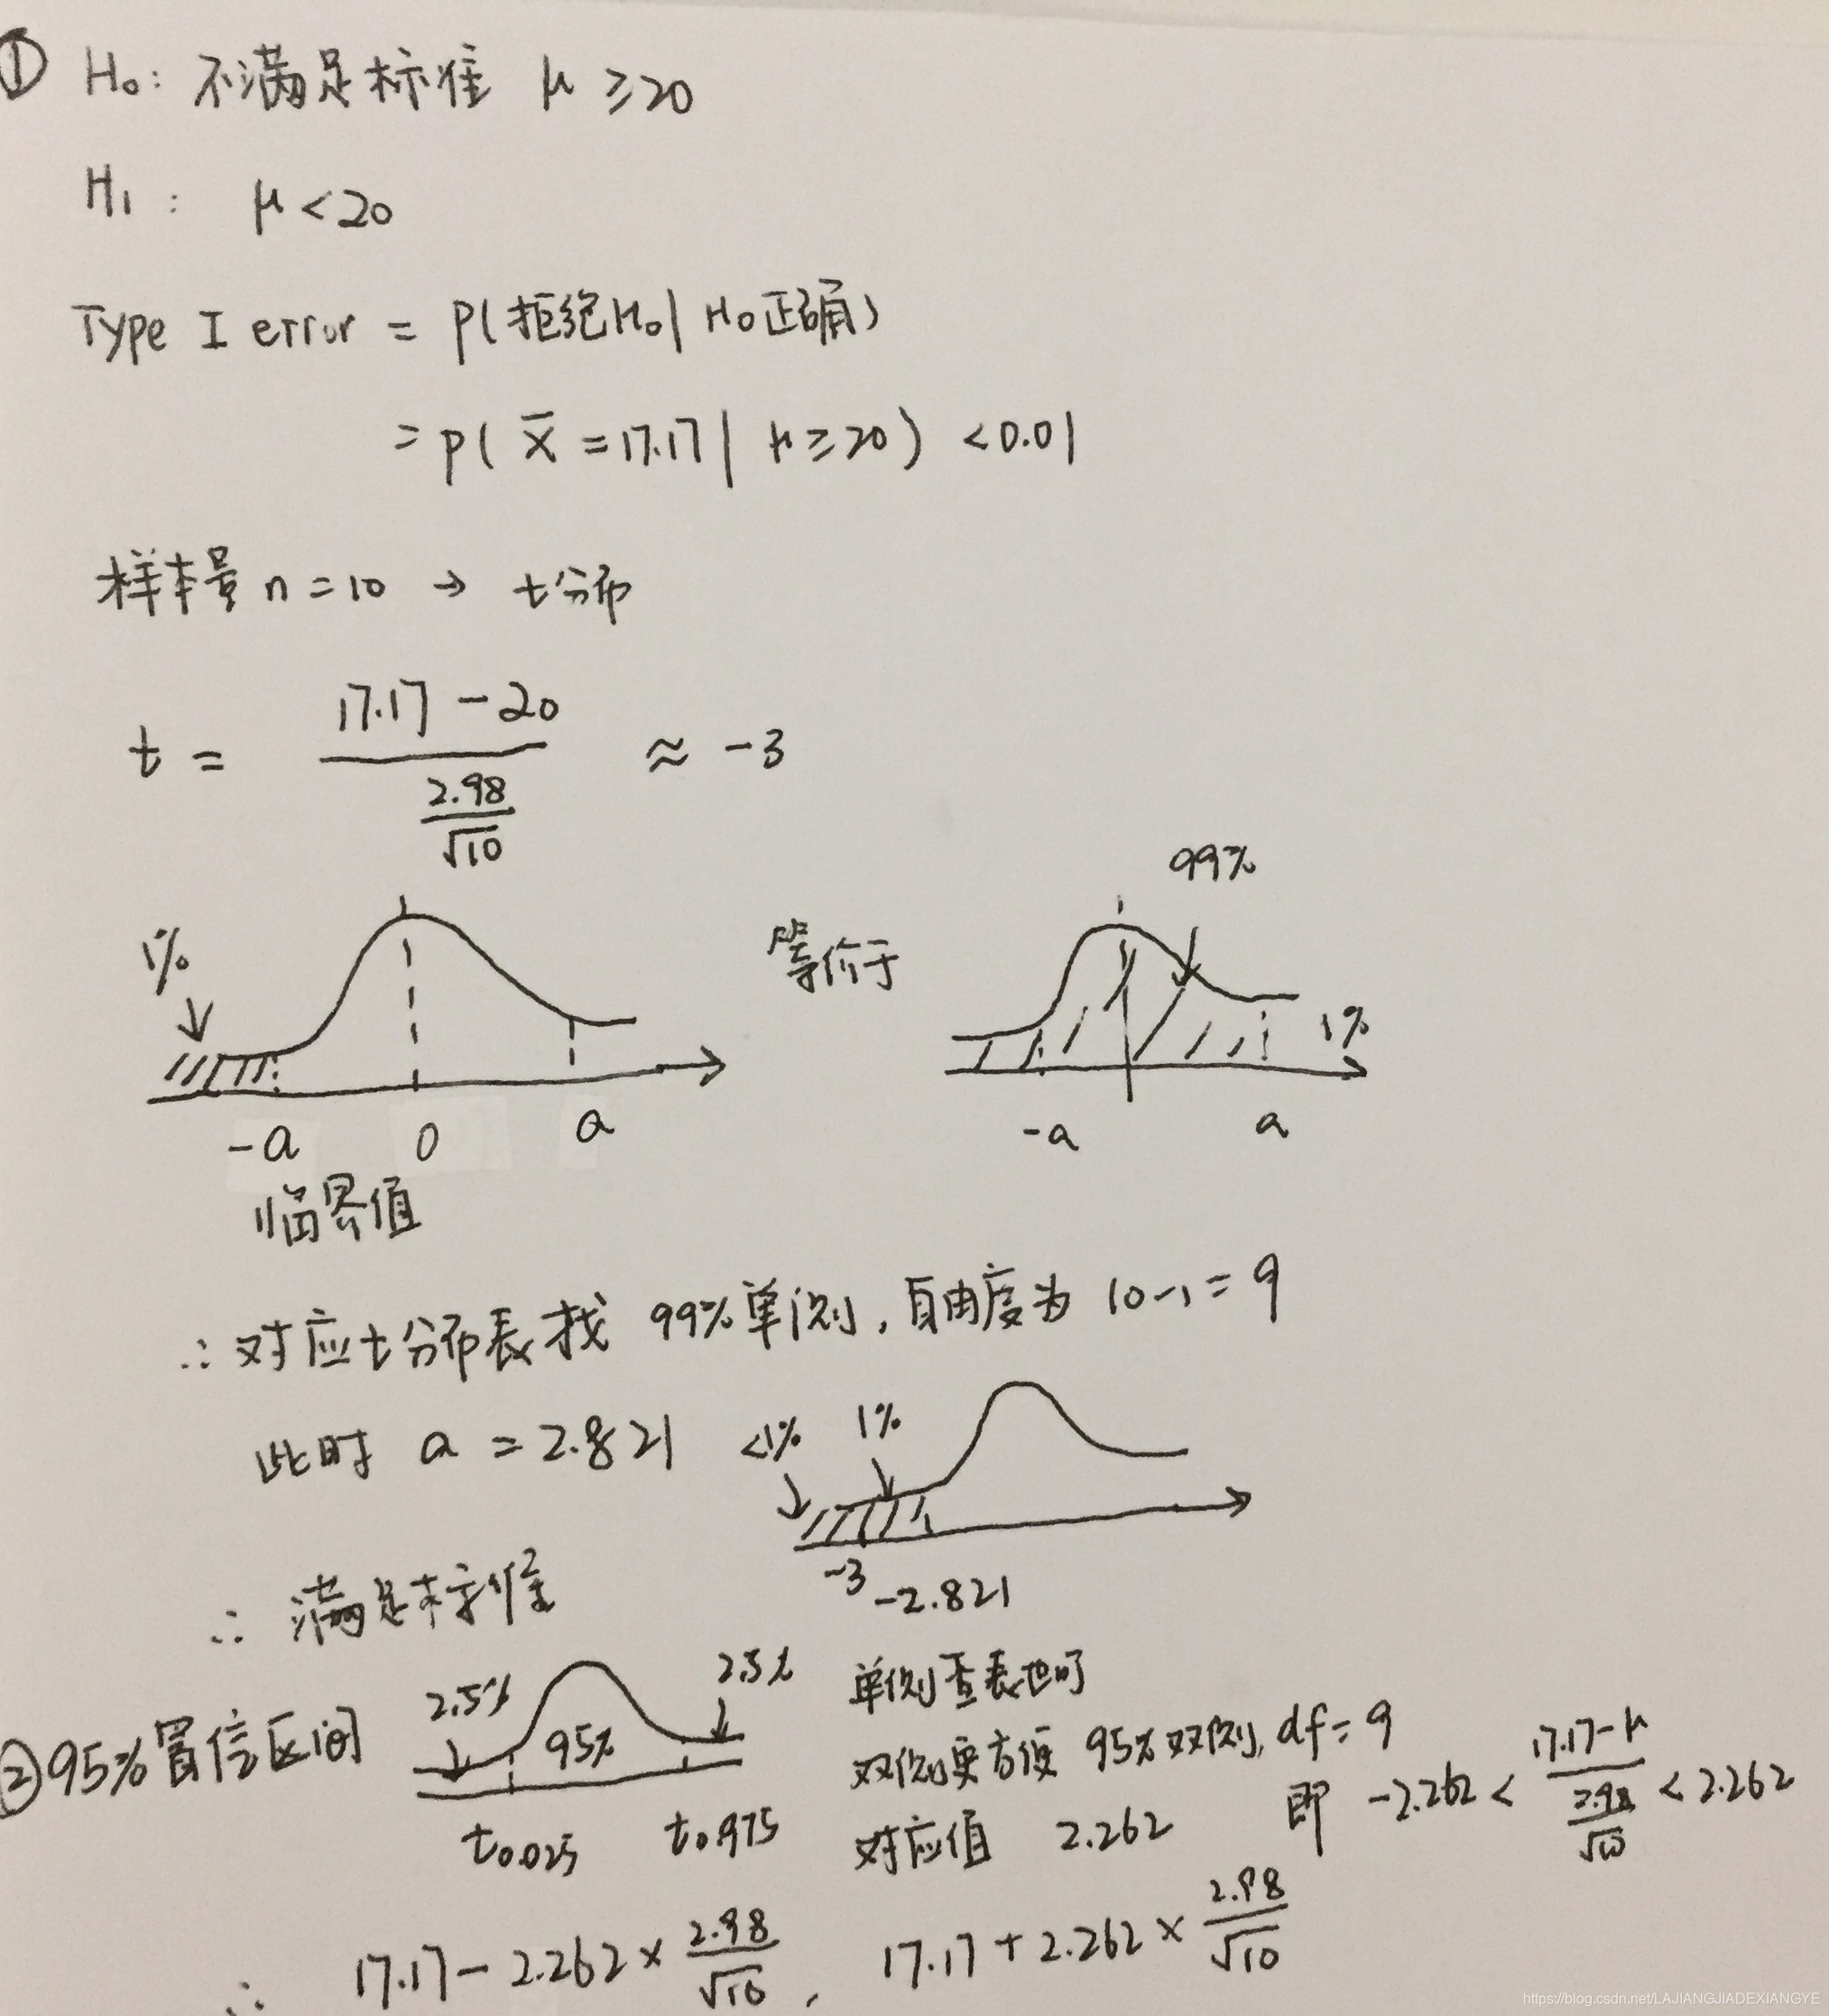 ① H₀: 不满足标准 μ ≥20
H₁: μ<20
Type I error = P(拒绝H₀| H₀正确)
= p( x̄ =17.17| μ≥20) <0.01
样本量 n=10 → t分布
t = (17.17 -20)/(2.98/√10) ≈ -3
99%
1% 等价于 1%
-a 0 a -a a
临界值
∴对应t分布表找 99%单侧, 自由度为 10-1=9
此时 a =2.821 <1% 1%
-3 -2.821
∴ 满足标准
2.5% 2.5% 单侧查表也可
②95%置信区间 95% 双侧更方便 95%双侧, df=9
t0.025 t0.975 对应值 2.262 即 -2.262 < (17.17-μ)/(2.98/√10) < 2.262
∴ 17.17- 2.262× 2.98/√10 , 17.17+2.262× 2.98/√10
https://blog.csdn.net/LAJIANGJIADEXIANGYE